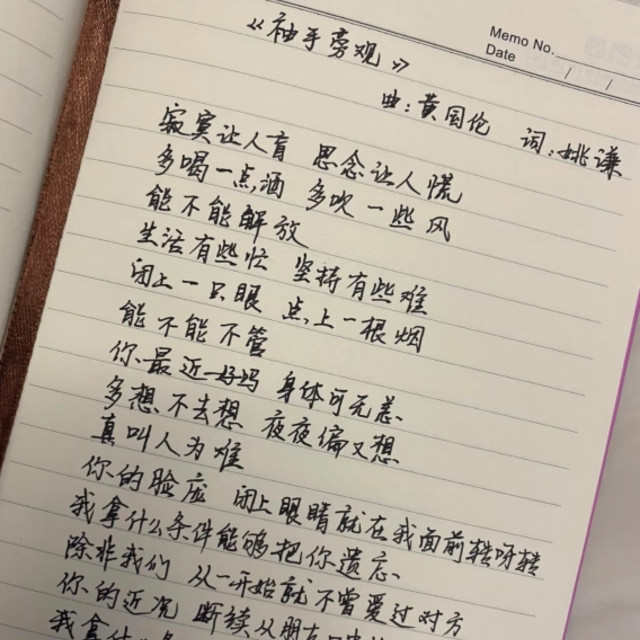 Memo No.
Date / /
《袖手旁观》
曲：黄国伦 词：姚谦
寂寞让人盲 思念让人慌
多喝一点酒 多吹一些风
能不能解放
生活有些忙 坚持有些难
闭上一只眼 点上一根烟
能不能不管
你最近好吗 身体可无恙
多想不去想 夜夜偏又想
真叫人为难
你的脸庞 闭上眼睛就在我面前转呀转
我拿什么条件能够把你遗忘
除非我们 从一开始就不曾爱过对方
你的近况 断续从朋友口中
我拿什么